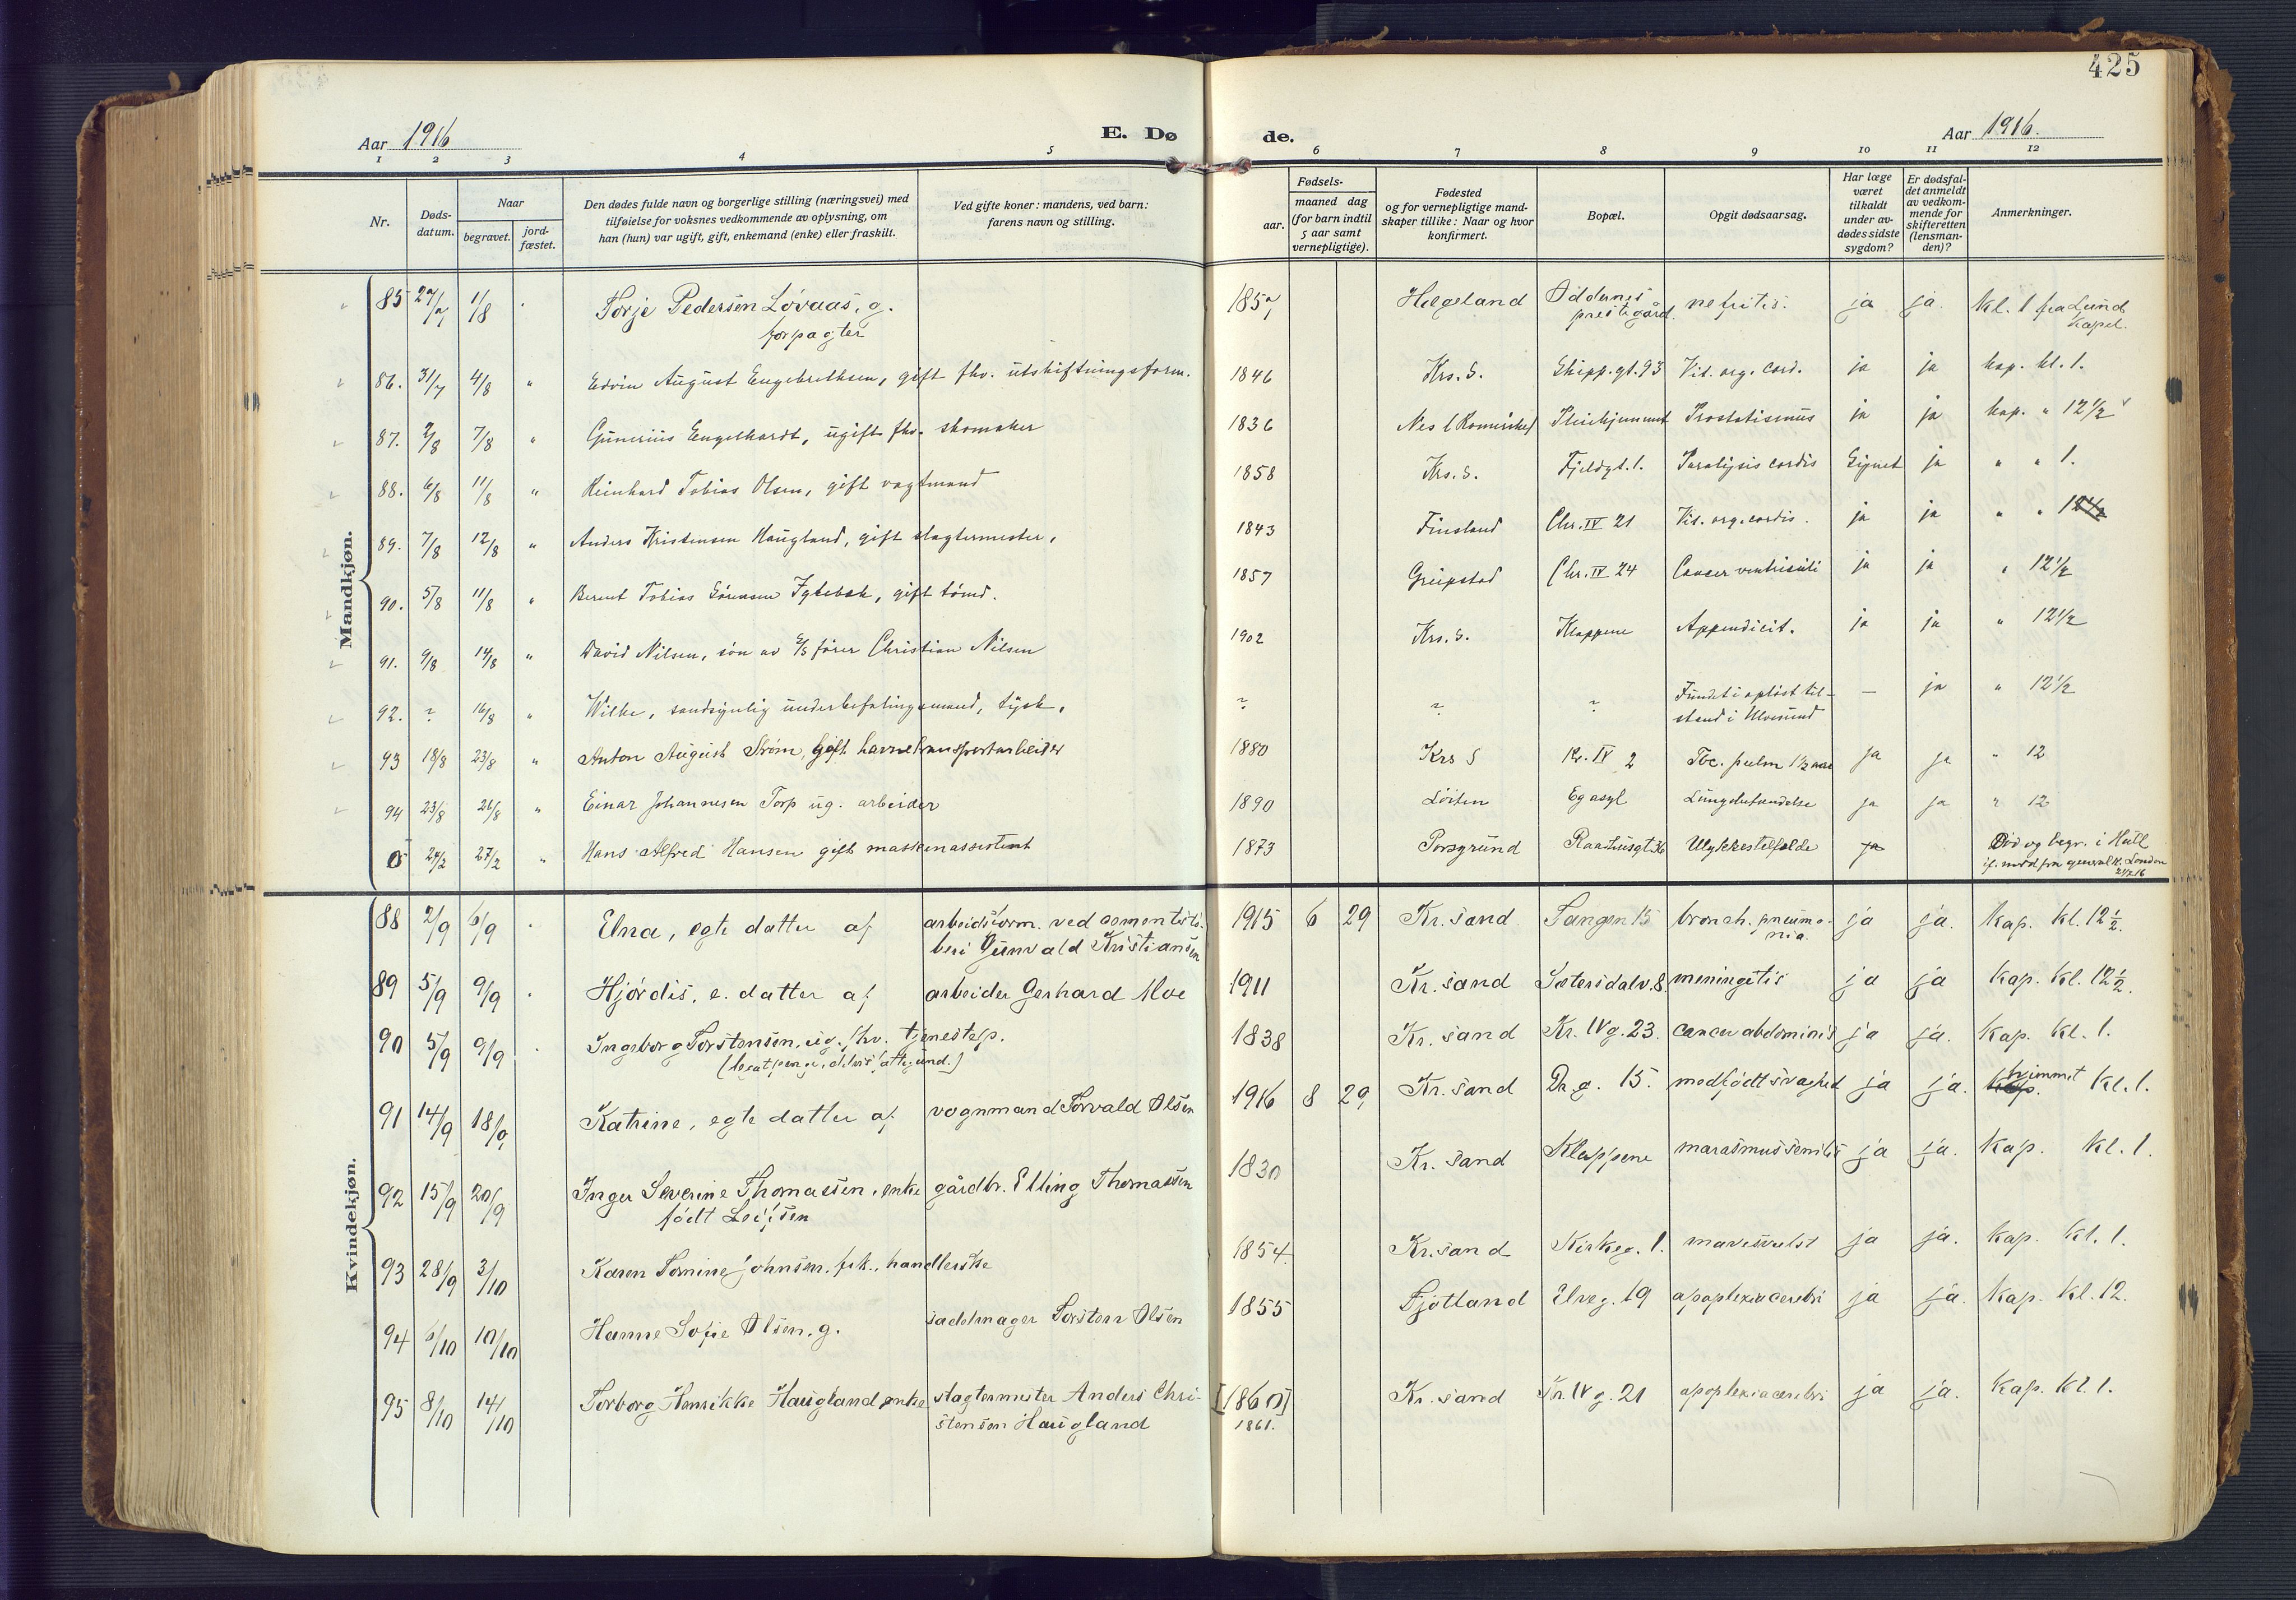 425
Aar 1916
E. Dø
de.
Aar 1916.
1 2 3 4 5 6 7 8 9 10 11 12
Nr.
Døds-
datum.
Naar
begravet.
jord-
fæstet.
Den dødes fulde navn og borgerlige stilling (næringsvei) med
tilføielse for voksnes vedkommende av oplysning, om
han (hun) var ugift, gift, enkemand (enke) eller fraskilt.
Ved gifte koner: mandens, ved barn:
farens navn og stilling.
Fødsels-
aar.
maaned dag
(for barn indtil
5 aar samt
vernepligtige).
Fødested
og for vernepligtige mand-
skaper tillike: Naar og hvor
konfirmert.
Bopæl.
Opgit dødsaarsag.
Har læge
været
tilkaldt
under av-
dødes sidste
sygdom?
Er dødsfal-
det anmeldt
av vedkom-
mende for
skifteretten
(lensman-
den)?
Anmerkninger.
Mandkjøn.
85 27/7 1/8 Torje Pedersen Løvaas, g. 1857 Hægeland Oddernes nefritis. ja ja. Kl. 1 fra Lund
forpagter prestegård. Kapel.
86. 31/7 4/8 " Edvin August Engebrethsen, gift fhv. utskiftningsform. 1846 Krs. S. Skipp.gt. 93 Vit. org. cord. ja ja kap. kl. 1.
87. 2/8 7/8 " Gunerius Engelhardt, ugift fhv. skomaker 1836 Nes (Romerike) Pleiehjemmet Prostatismus ja ja kap. " 12 1/2
88. 6/8 11/8 " Reinhard Tobias Olsen, gift vagtmand 1858 Krs. S. Fjeldgt. 1. Paralysis cordis Signet ja " " 1.
89. 7/8 12/8 " Anders Kristensen Haugland, gift slagtermester, 1843 Finsland Chr. IV 21 Vit. org. cordis. ja ja " " 12 1/2
90. 5/8 11/8 " Berent Tobias Sørensen, gift tømd. 1857 Greipstad Chr. IV 24 Cancer ventriculi ja ja " 12 1/2
91. 9/8 14/8 " David Nilsen, søn av S/S fører Christian Nilsen 1902 Krs. S. Kloppene Appendicit. ja ja " 12 1/2
92. ? 16/8 " Wilke, sandsynlig underbefalingsmand, tysk. ? ? ? Fundet i opløst til- — ja " 12 1/2
stand i Ulvøsund
93 18/8 23/8 " Anton August Strøm, gift havnetransportarbeider 1880 Krs S Kr. IV 2 Tbc. pulm 1 1/2 aar ja ja " 12
94 23/8 26/8 " Einar Johannesen Torp ug. arbeider 1890 Løiten Eg asyl Lungebetændelse ja ja " 12
0 24/2 27/2 " Hans Alfred Hansen gift maskinassistent 1873 Porsgrund Raadhusgt 36 Ulykkestilfælde ja Død og begr. i Hull
if. medd fra generalk. London
Kvindekjøn.
88 2/9 6/9 Elna, egte datter af arbeidsform. ved cementstø- 1915 6 29 Kr. sand Tangen 15 bronch. pneumo- ja ja. Kap. Kl. 12 1/2.
beri Gunvald Kristiansen nia.
89 5/9 9/9 Hjørdis, e. datter af arbeider Gerhard Moe 1911 Kr. sand Setersdalv. 8 meningitis ja ja Kap. Kl. 12 1/2.
90 5/9 9/9 Ingeborg Torstensen, ug. fhv. tjenestep. 1838 Kr. sand Kr. IV g. 23. cancer abdominis ja ja. Kap. Kl. 1.
91 14/9 18/9 Katrine, egte datter af vognmand Torvald Olsen 1916 8 29 Kr. sand Dr. g. 15. medfødt svaghed ja ja. kap. hjimmet Kl. 1.
92 15/9 20/9 Inger Severine Thomassen, enke gårdbr. Elling Thomassen 1830 Kr. sand Kloppene marasmus senilis ja ja. Kap. Kl. 1.
født Leifsen
93 28/9 3/10 Karen Tomine Johnsen, frk., handlerske 1854. Kr. sand Kirkeg. 1. mavesvulst ja ja. Kap. Kl. 1.
94 6/10 10/10 Hanne Sofie Olsen, g. sadelmager Torsten Olsen 1855 Fjotland Elveg. 19 apoplexia cerebri ja ja. Kap. Kl. 12.
95 8/10 14/10 Torborg Henrikke Haugland enke slagtermester Anders Chri- [1860] Kr. sand Kr. IV g. 21 apoplexia cerebri ja ja. Kap. Kl. 1.
stensen Haugland 1861.